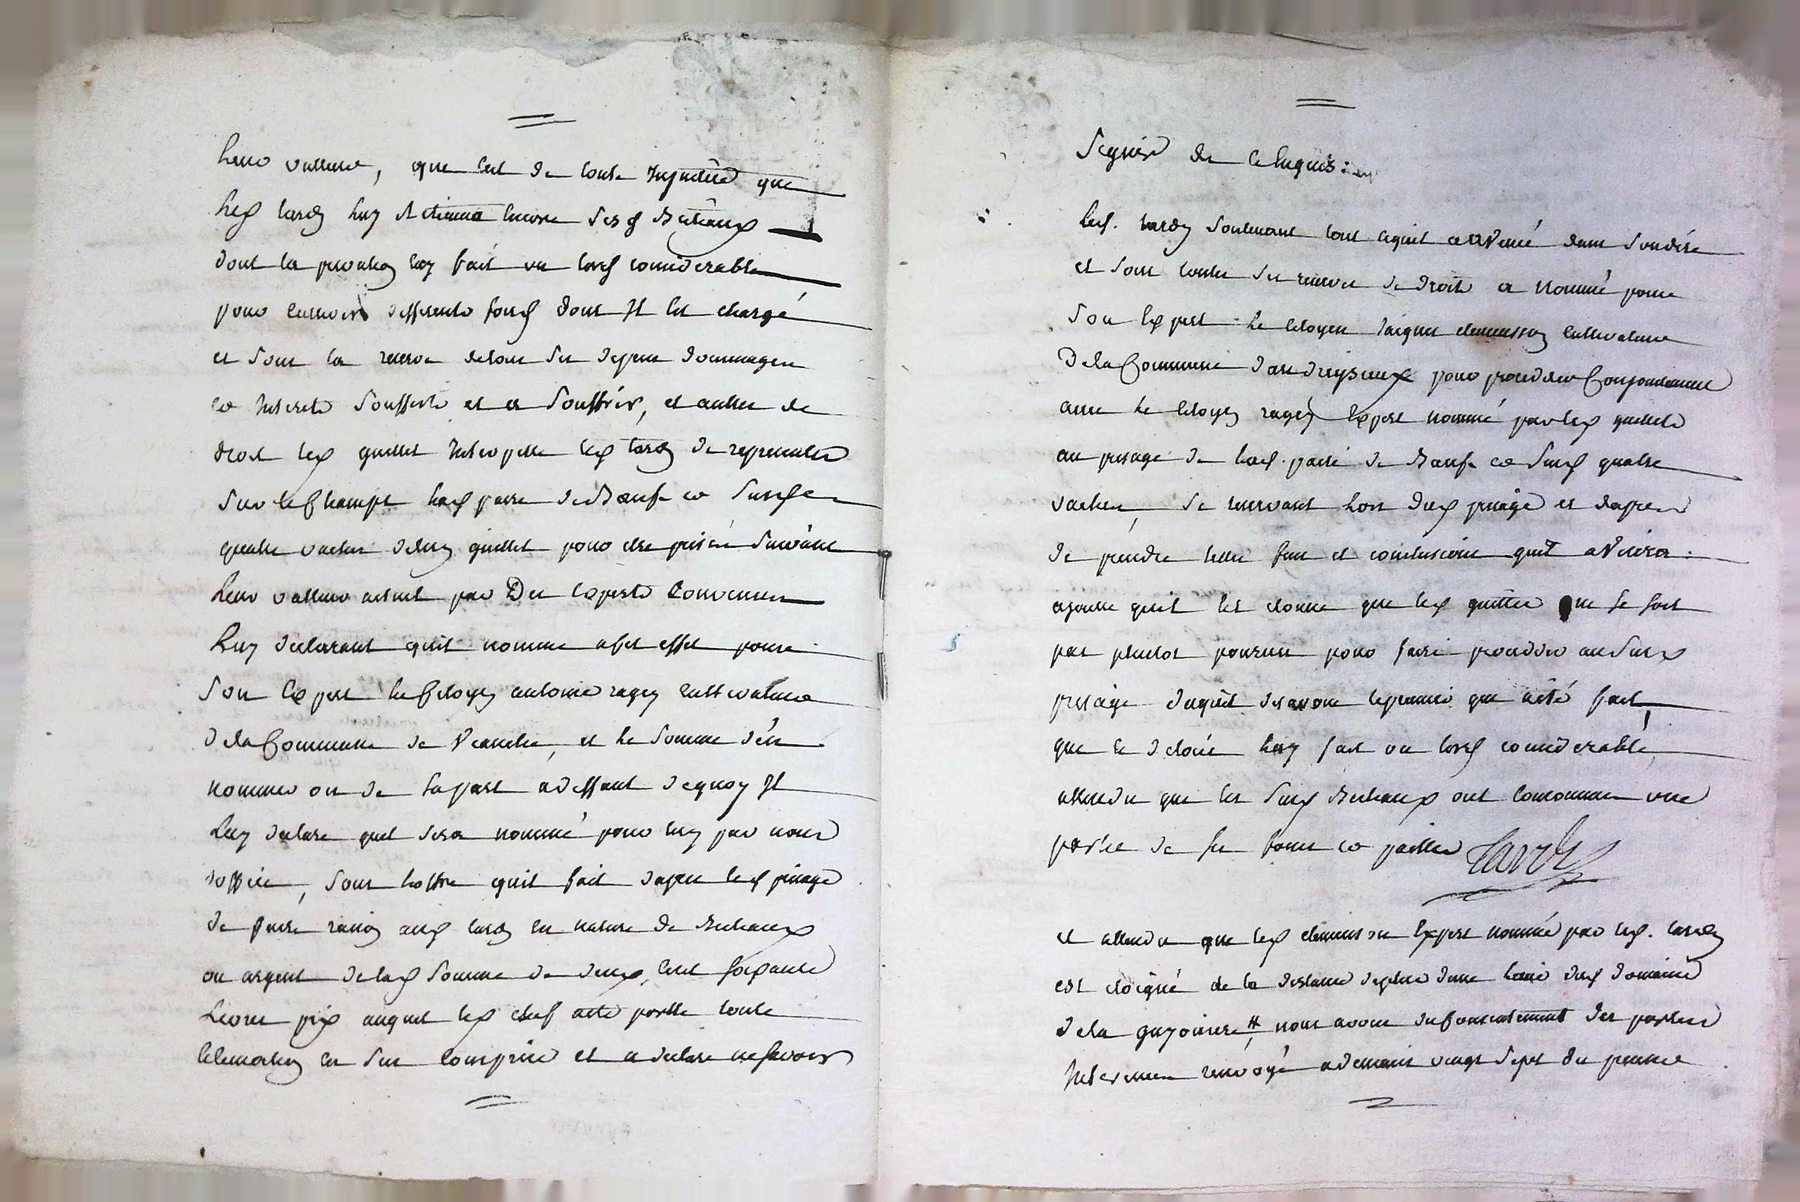 leur valleur, que cest de toute injustice que
led. tardy luy detienne encore sesd. Bestiaux
dont la privation luy fait un tord considerable
pour cultiver differents fond dont Il est chargé
et sous la reserve de tous ses depens dommages
et interets soufferts et a souffrir, et autres de
droit led. guillet interpelle led. tardy de representer
sur le champ lad. paire de Bœufs et susd.
quatre vaches dud. guillet pour etre prisée suivant
leur valleur actuel par Des experts convenus
luy declarant quil nomme a cet effet pour
son Expert le Citoyen antoine ragey cultivateur
de la Commune de Veauche, et le somme d'en
nommer un de sa part a deffaut de quoy Il
luy declare quil sera nommé pour luy par nous
d'office, sous l'offre quil fait d'apres led. prisage
de faire raison aud. tardy en nature de Bestiaux
ou argent de lad. somme de deux cent soixante
livres prix auquel led. chef avoit porté toute
lestimation en son comprise et a declaré ne savoir
signer de ce Enquis :
led. tardy soutenant tout ce quil a avancé dans son dire
et sous toutes ses reserves de droit a nommé pour
son Expert le Citoyen jacques clemenson cultivateur
De la Commune d'andreysieux pour proceder Conjointement
avec le Citoyen ragey Expert nommé par led. guillet
au prisage de lad. paire de Bœufs et susd. quatre
vaches, se reservant lors dud. prisage et d'apres
de prendre telles fins et conclusions quil avisera :
ajoute quil est etonné que led. guillet ne se soit
pas plustot pourvu pour faire proceder au susd.
prisage duquel desavoue le premier que a été fait,
que ce delais luy fait un tord considerable,
attendu que les susd. Bestiaux ont consommé une
partie de ses foins et pailles Tardy
et attendu que led. clemenson Expert nommé par led. tardy
est eloigné de la distance de plus d'une lieue dud. domaine
de la guyonniere #, nous avons du consentement des parties
Interessées renvoyé a demain vingt sept du present